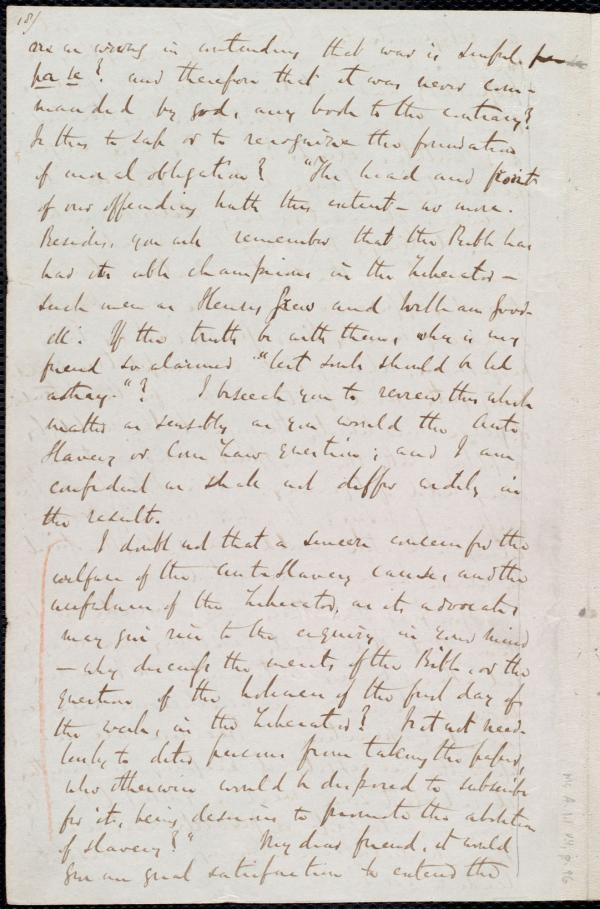 18/
we are wrong in contending that war is sinful, per
per se? and therefore that it was never com-
manded by god, any book to the contrary?
Is this to sap or to recognize the foundation
of moral obligation? "The head and front
of our offending hath this extent – no more.
Besides, you will remember that the Bible has
had its able champions in the Liberator –
such men as Henry Grew and William Good-
ell. If the truth be with them, why is my
friend so alarmed "lest souls should be led
astray."? I beseech you to review this whole
matter as sensibly as you would the Anti
Slavery or Corn Law question; and I am
confident we shall not differ widely in
the result.
I doubt not that a sincere concern for the
welfare of the Anti Slavery cause, and the
usefulness of the Liberator, as its advocate
may give rise to the enquiry in your mind
– why discuss the merits of the Bible, or the
question of the holiness of the first day of
the week, in the Liberator? Is it not need-
lessly to deter persons from taking the paper,
who otherwise would be disposed to subscribe
for it, being desirous to promote the abolition
of slavery?" My dear friend, it would
give me great satisfaction to extend the
Ms A.1.1 V4, p. 96